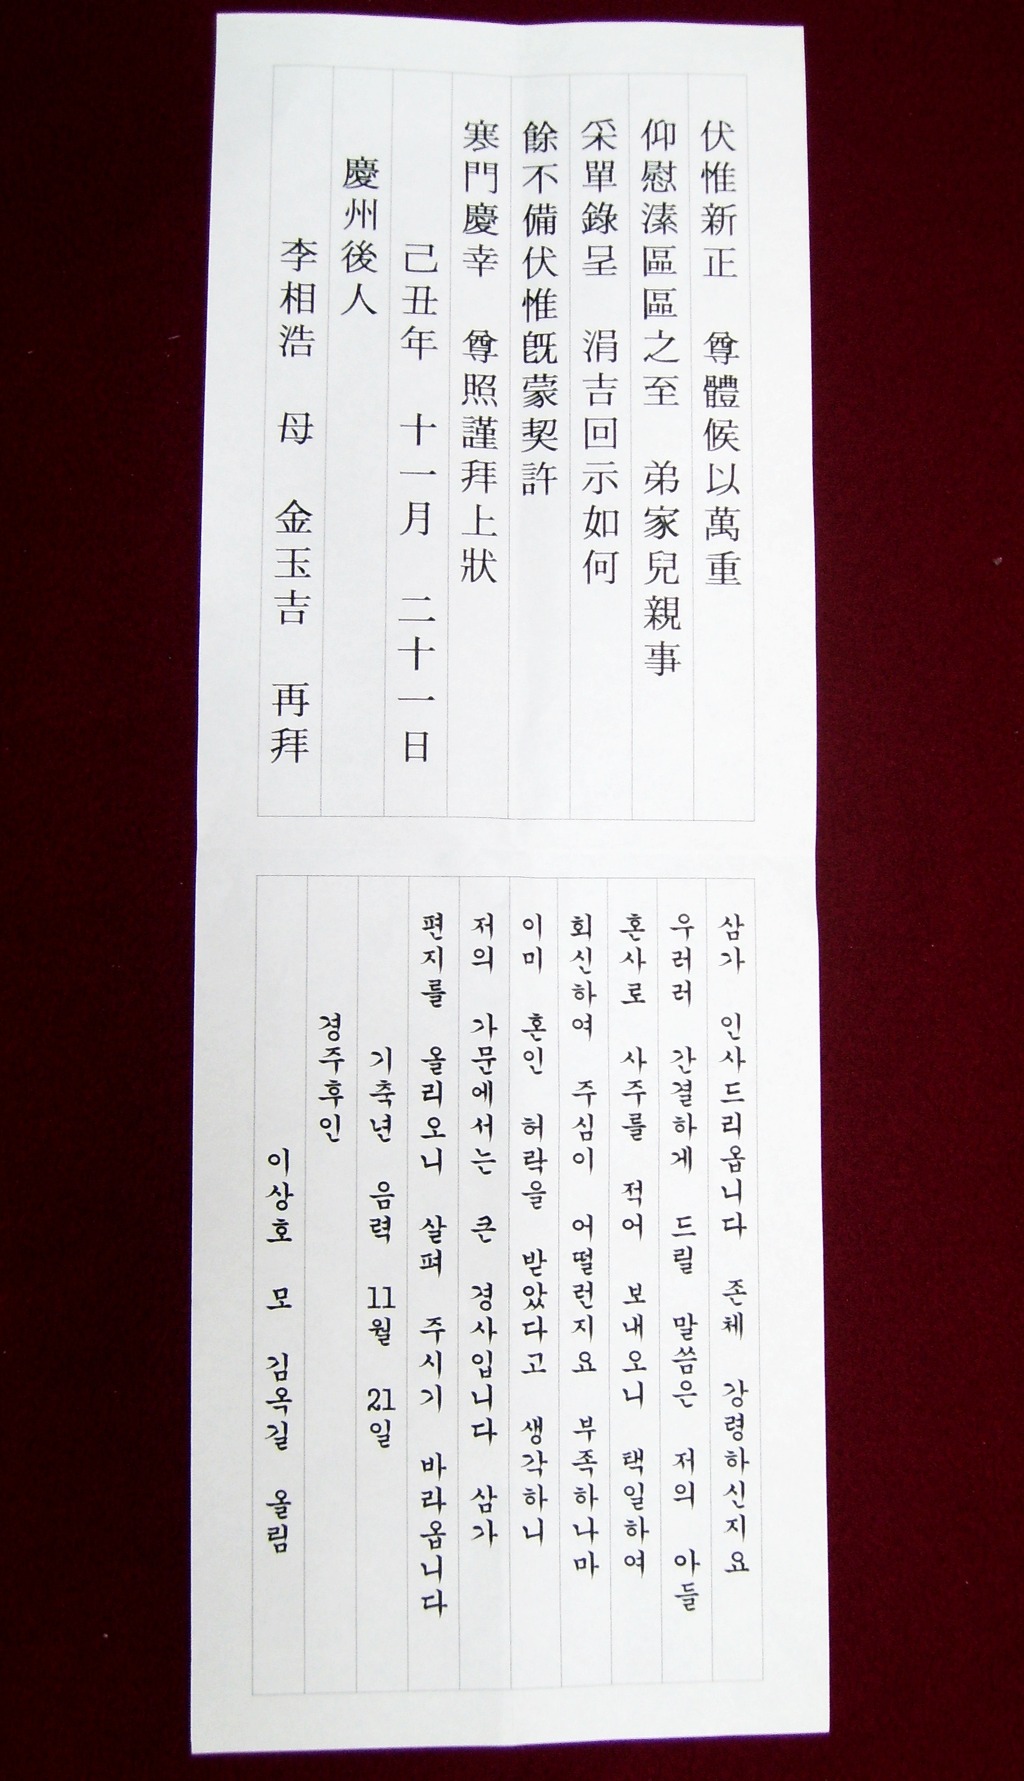 伏惟新正 尊體候以萬重
仰慰溸區區之至 弟家兒親事
采單錄呈 涓吉回示如何
餘不備伏惟旣蒙契許
寒門慶幸 尊照謹拜上狀
己丑年 十一月 二十一日
慶州後人
李相浩 母 金玉吉 再拜
삼가 인사드리옵니다 존체 강령하신지요
우러러 간결하게 드릴 말씀은 저의 아들
혼사로 사주를 적어 보내오니 택일하여
회신하여 주심이 어떨런지요 부족하나마
이미 혼인 허락을 받았다고 생각하니
저의 가문에서는 큰 경사입니다 삼가
편지를 올리오니 살펴 주시기 바라옵니다
기축년 음력 11월 21일
경주후인
이상호 모 김옥길 올림